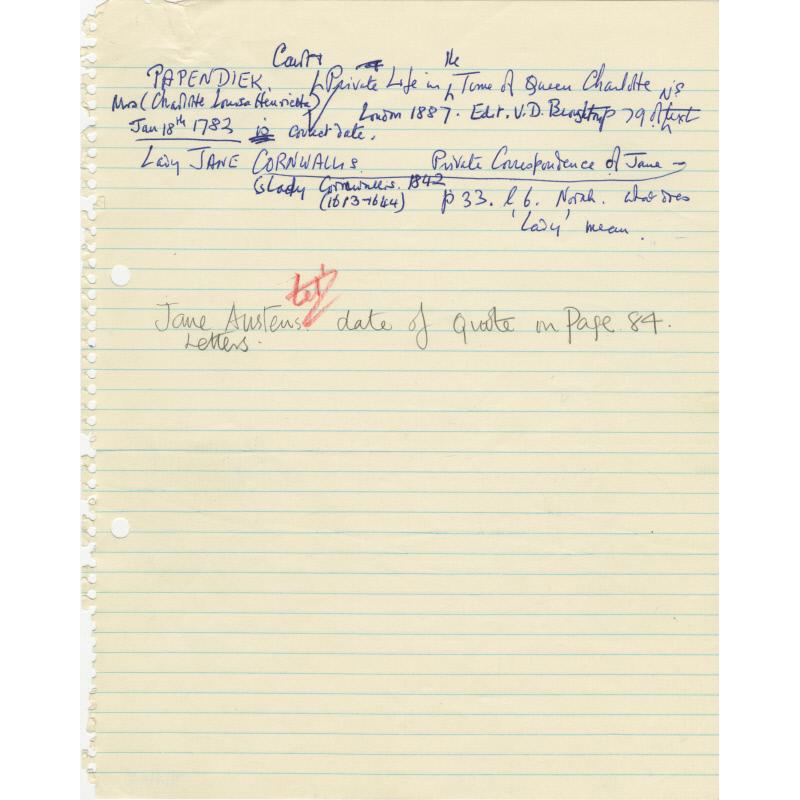 Court & the
PAPENDIEK. Private Life in Time of Queen Charlotte
Mrs (Charlotte Louisa Henrietta) London 1887. Edit. V.D. 79 of text
Jan 18th 1783 is correct date.
Lady JANE CORNWALLIS. Private Correspondence of Jane –
Lady Cornwallis. 1842 p 33. l 6. Norah. what does
(1613–1644) 'Lady' mean.
Jane Austens date of quote on Page 84.
Letters.